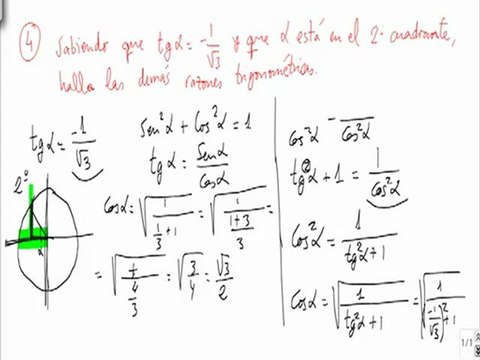 ④ Sabiendo que tgα = -1/√3 y que α está en el 2º cuadrante,
halla las demás razones trigonométricas.
tgα = -1/√3
2º
α
Sen²α + Cos²α = 1
tgα = Senα/Cosα
Cosα = √(1/(1/3 + 1)) = √(1/((1+3)/3)) =
= √(1/(4/3)) = √(3/4) = √3/2
cos²α - cos²α
tg²α + 1 = 1/cos²α
Cos²α = 1/(tg²α + 1)
Cosα = √(1/(tg²α + 1)) = √(1/((-1/√3)² + 1))
1/1